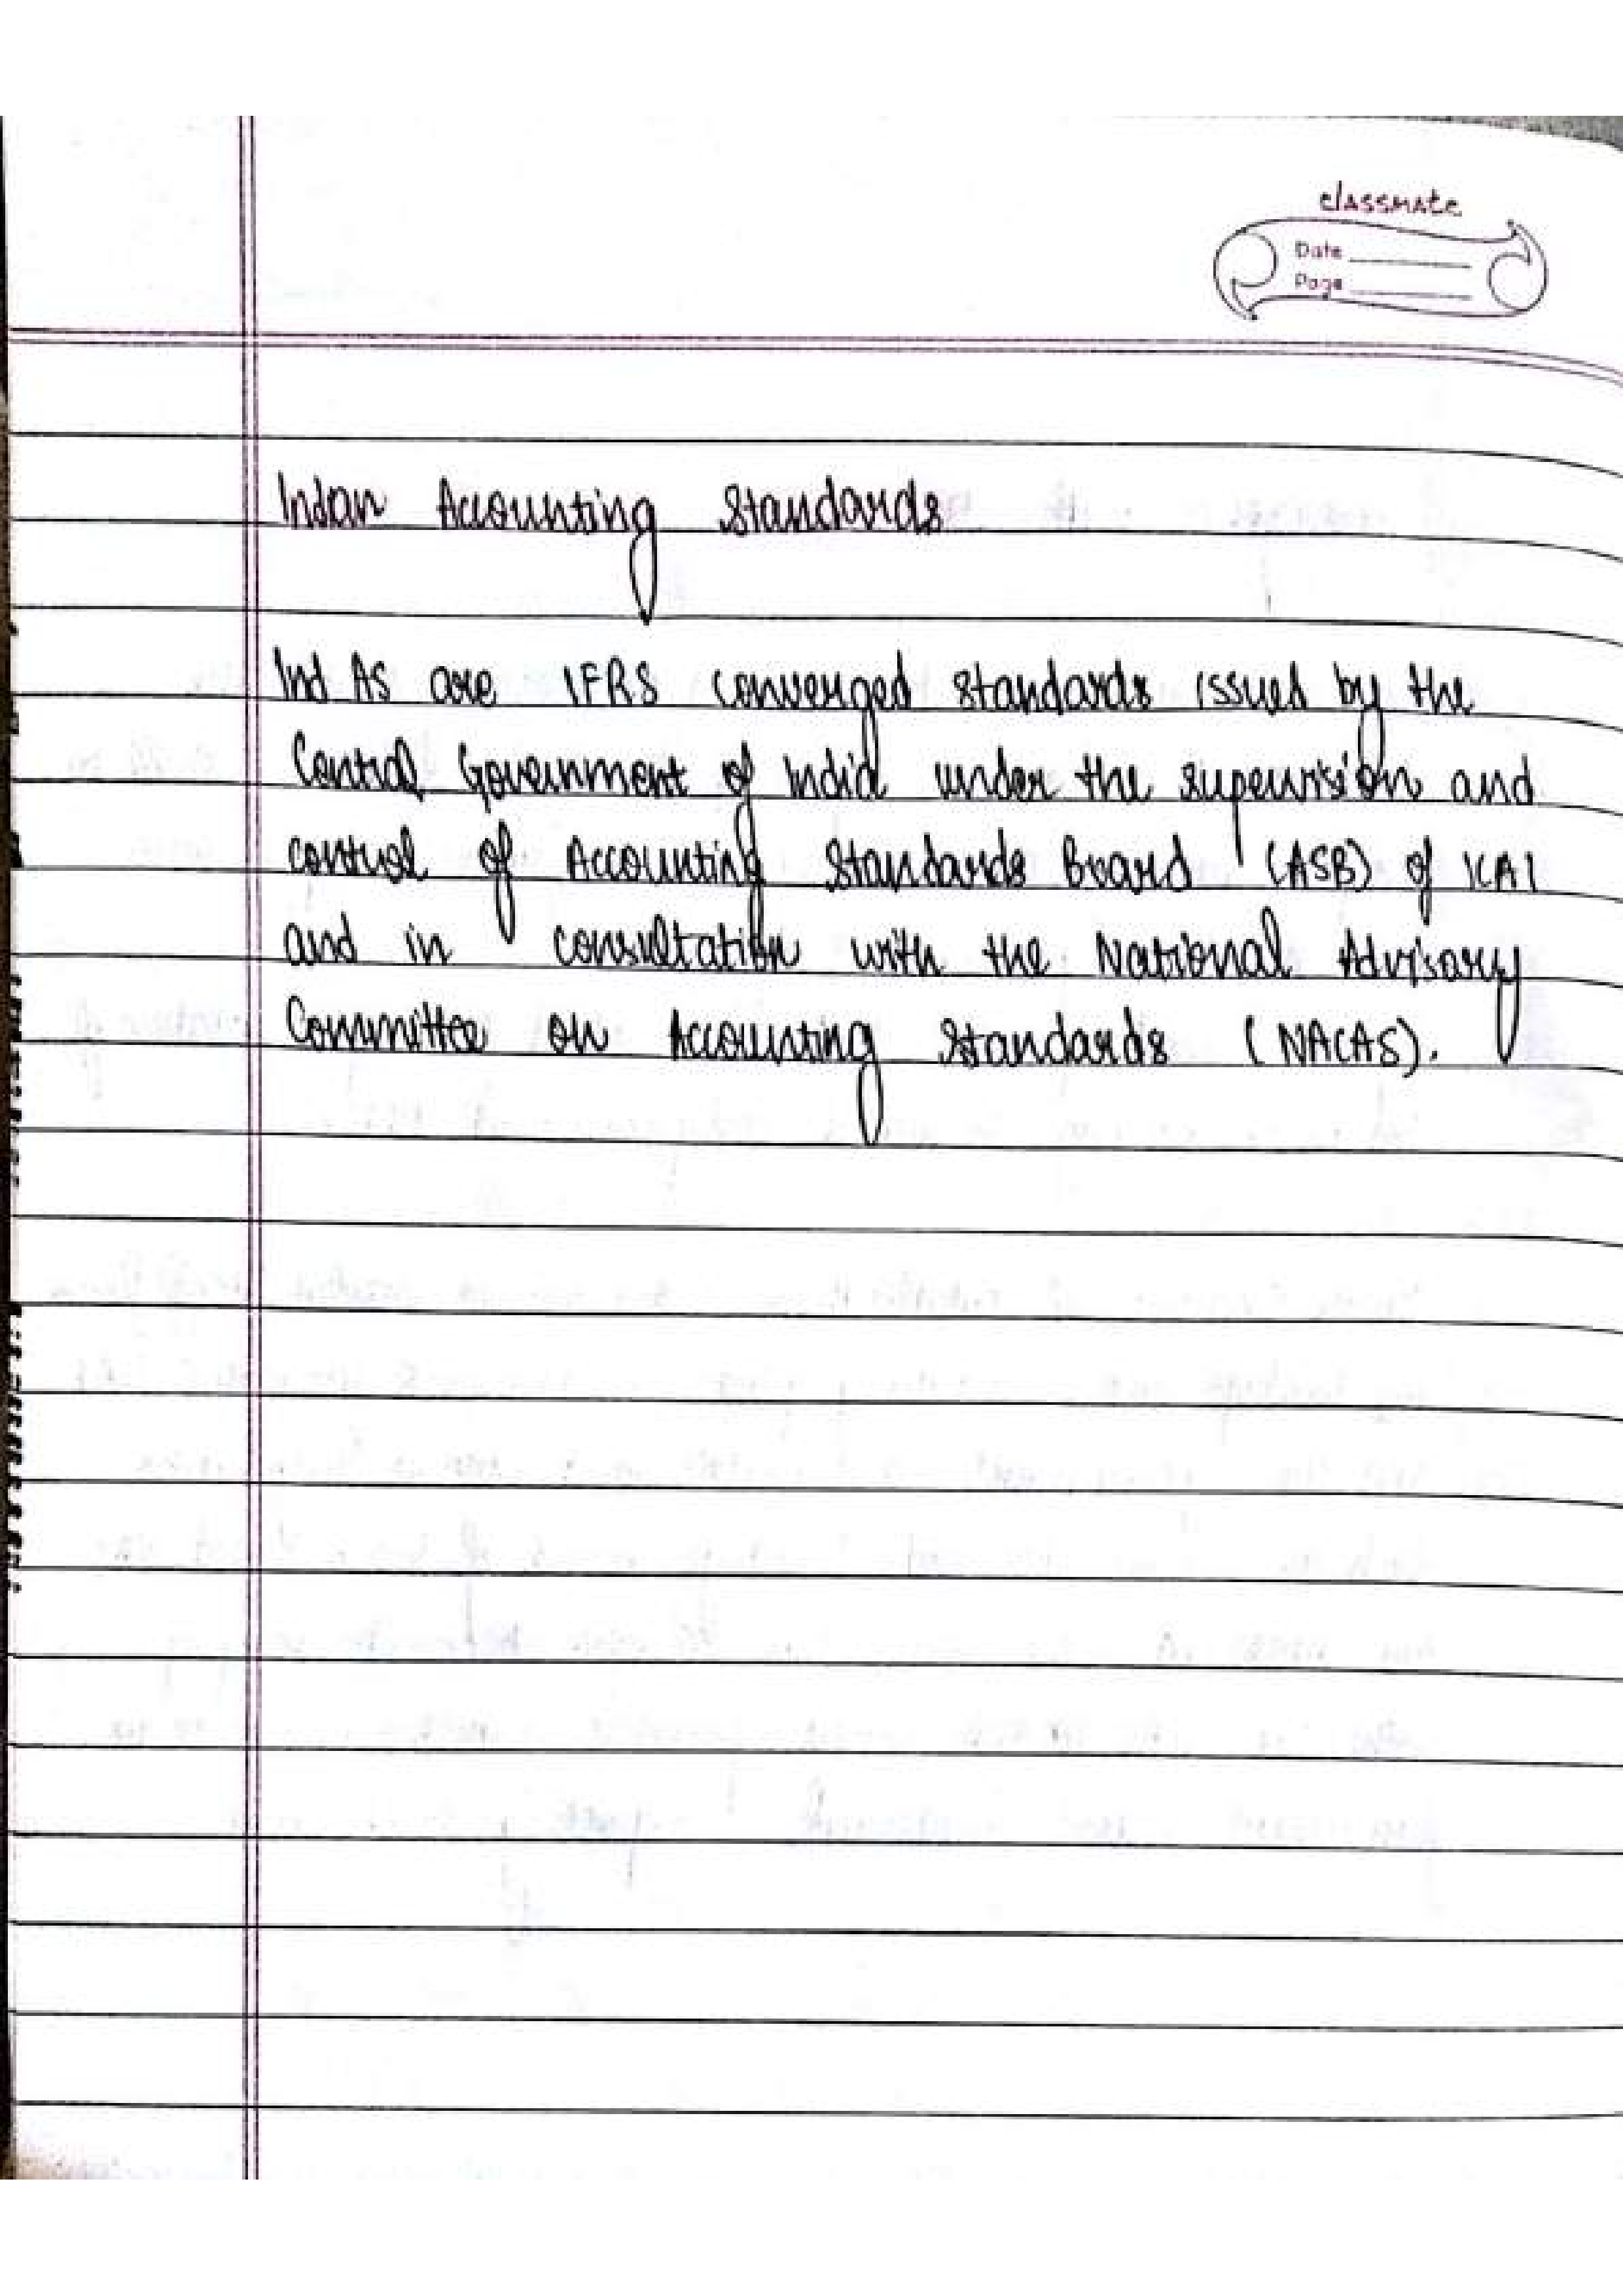 classmate
Date
Page
Indan Accounting Standards
Ind AS are IFRS converged standards issued by the
Central Government of India under the supervision and
control of Accounting Standards Board (ASB) of ICAI
and in consultation with the National Advisory
Committee on Accounting Standards (NACAS).